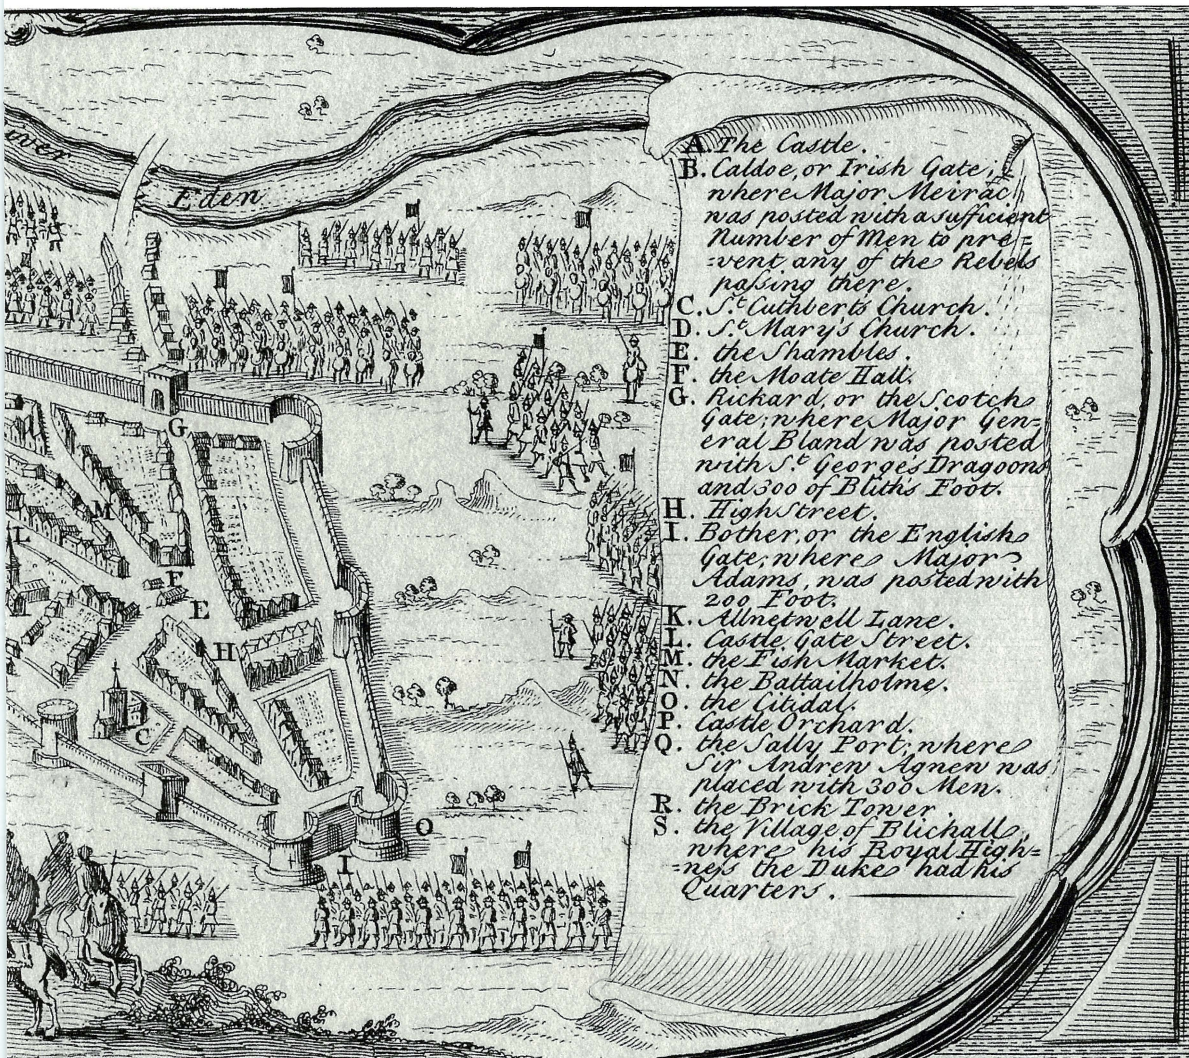 Eden
G
M
L
F
E
H
C
O
I
A. The Castle.
B. Caldoe, or Irish Gate,
where Major Meirac
was posted with a sufficient
Number of Men to pre=
=vent any of the Rebels
paſsing there.
C. S.t Cuthberts Church.
D. S.t Marys Church.
E. the Shambles.
F. the Moate Hall.
G. Rickard, or the Scotch
Gate; where Major Gen=
eral Bland was posted
with S.t Georges Dragoons
and 300 of Bliths Foot.
H. High Street.
I. Bother, or the English
Gate; where Major
Adams, was posted with
200 Foot.
K. Allnetwell Lane.
L. Castle Gate Street.
M. the Fish Market.
N. the Battailholme.
O. the Citidal.
P. Castle Orchard.
Q. the Sally Port; where
Sir Andrew Agnew was
placed with 300 Men.
R. the Brick Tower.
S. the Village of Blichall,
where his Royal High=
=neſs the Duke had his
Quarters.